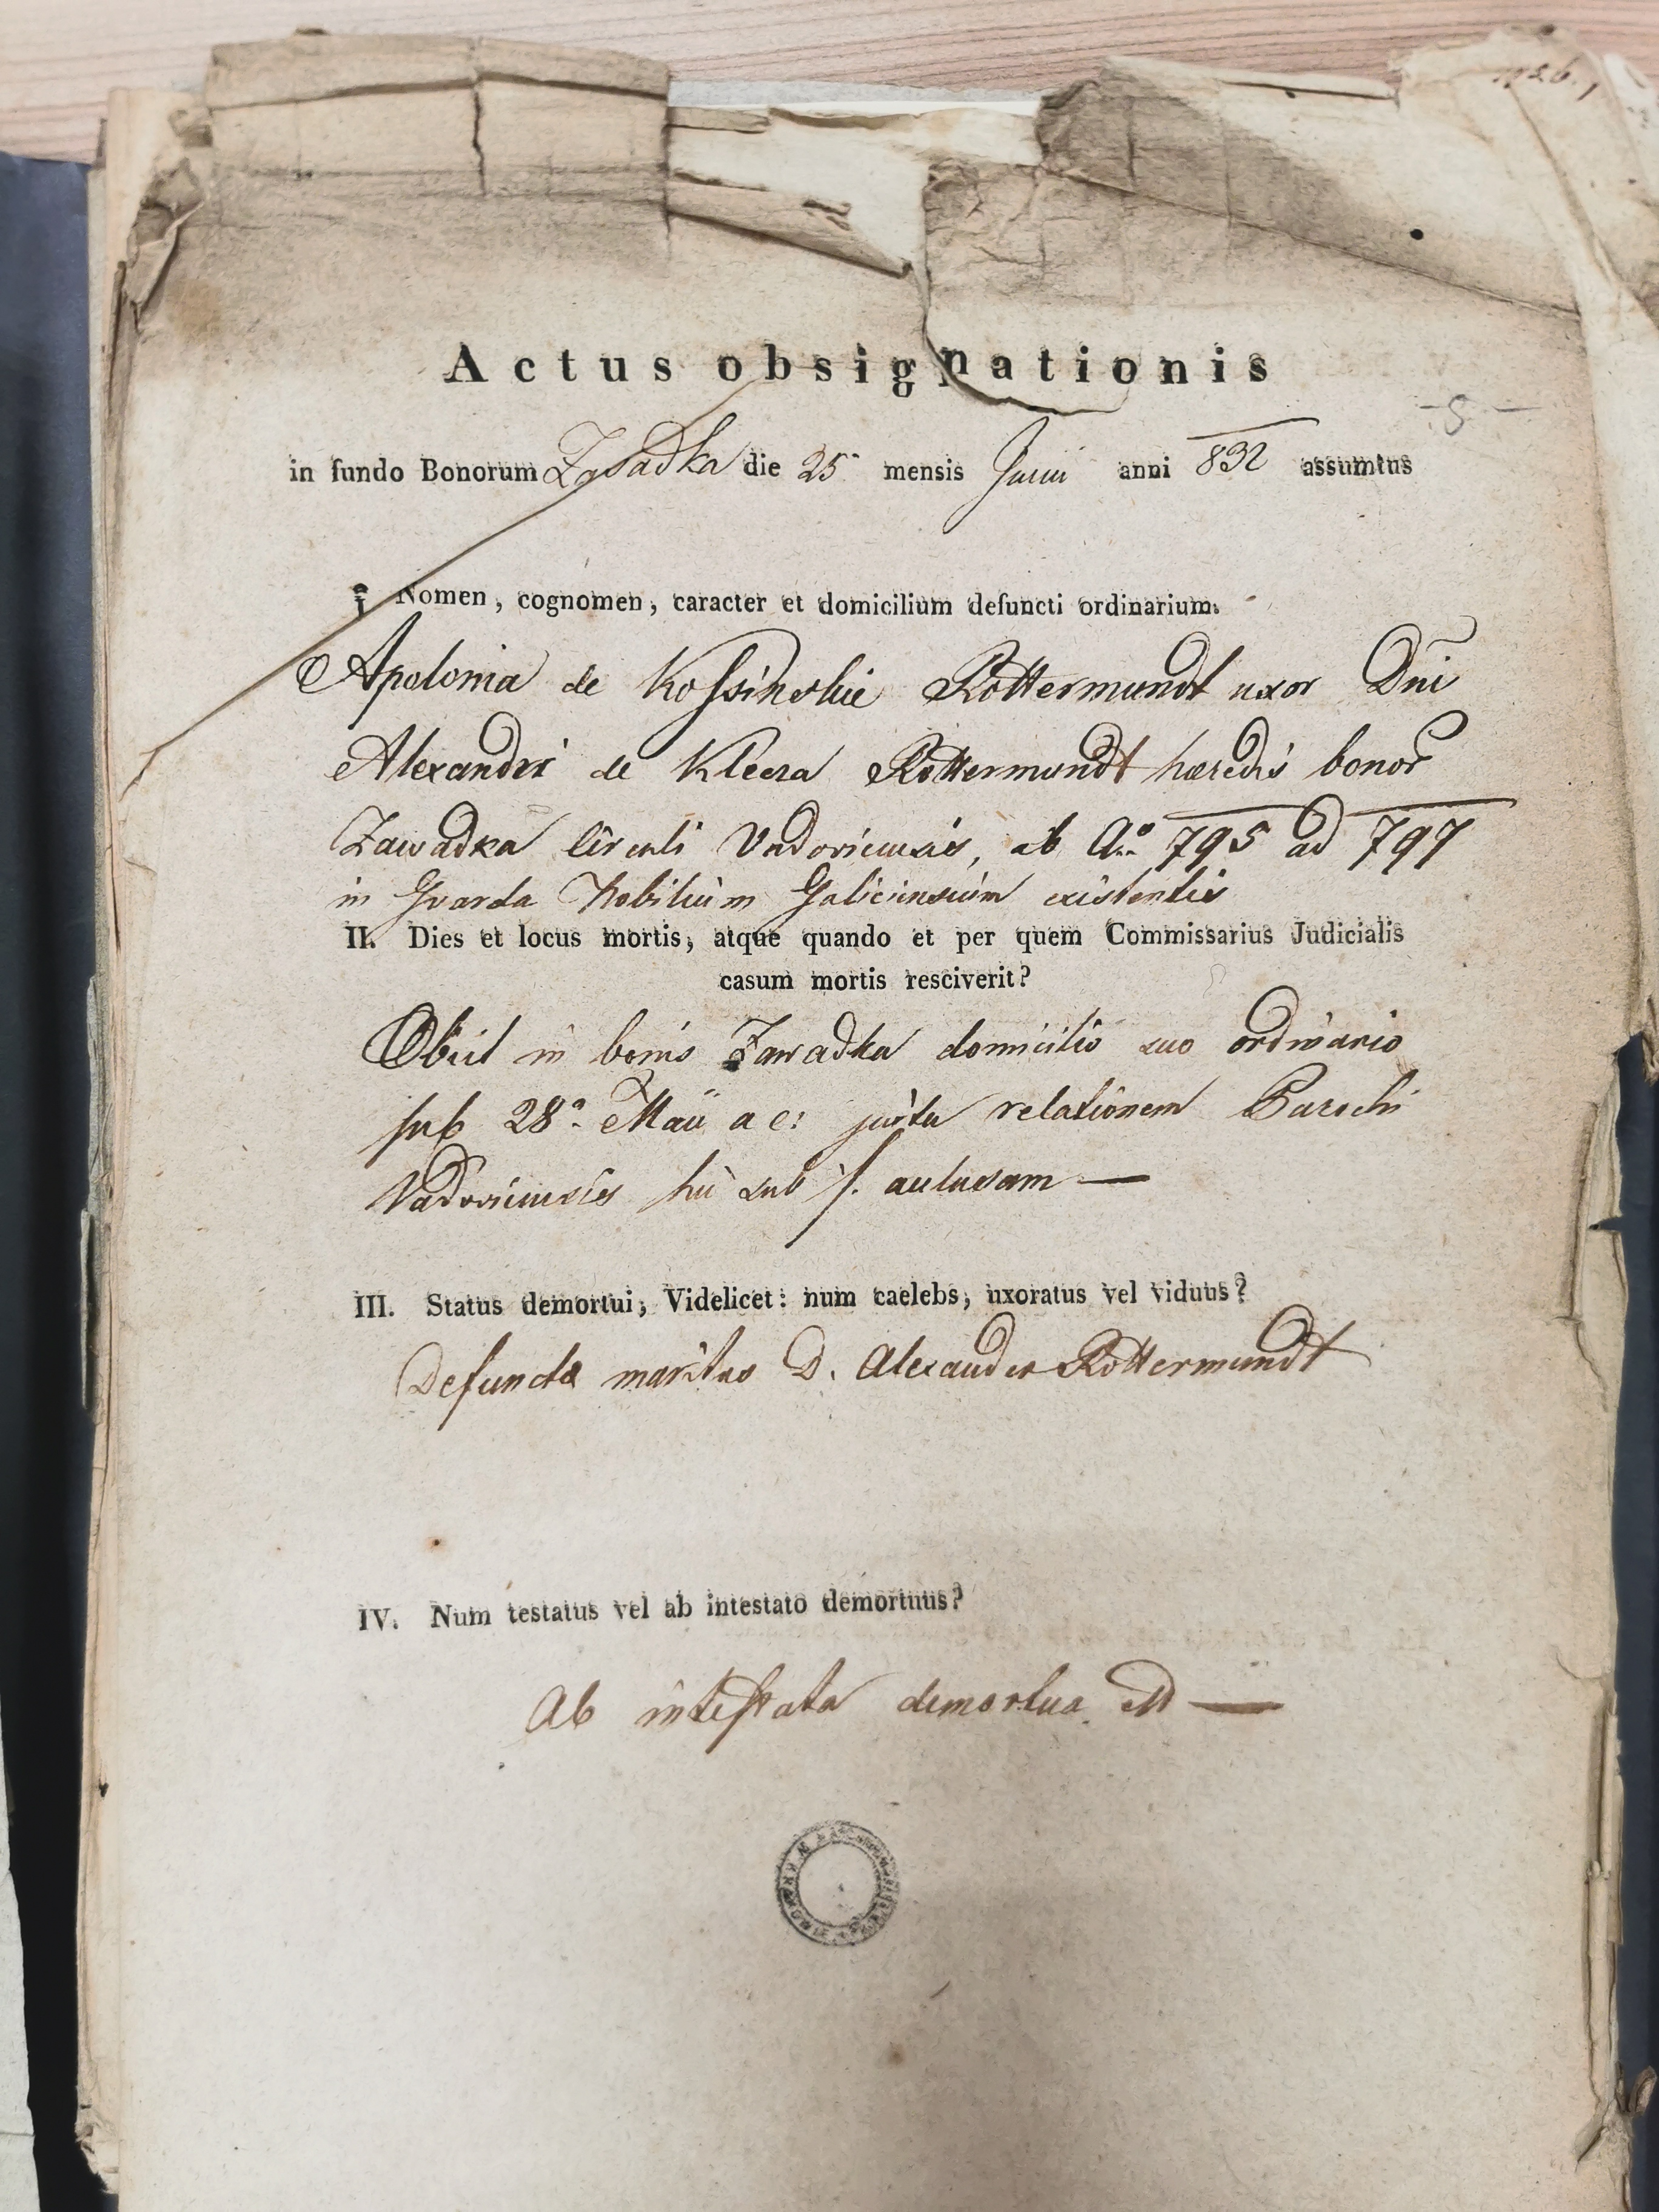 Actus obsignationis
-5-
in fundo Bonorum Zawadka die 25 mensis Junii anni 832 assumtus
I. Nomen, cognomen, caracter et domicilium defuncti ordinarium.
Apolonia de Kossinskie Rottermundt uxor Dni
Alexandri de Kleera Rottermundt hæredis bonor
Zawadka Circuli Vadovicensis, ab Ao 795 ad 797
in Gvarda Nobilium Galiciensium existentis
II. Dies et locus mortis, atque quando et per quem Commissarius Judicialis
casum mortis resciverit?
Obiit in bonis Zawadka domicilio suo ordinario
sub 28a Maii a c: juxta relationem Parochi
Vadovicensis hic sub /. aclusam —
III. Status demortui, Videlicet: num caelebs, uxoratus vel viduus?
Defuncta maritus D. Alexander Rottermundt
IV. Num testatus vel ab intestato demortuus?
Ab intestata demortua est —